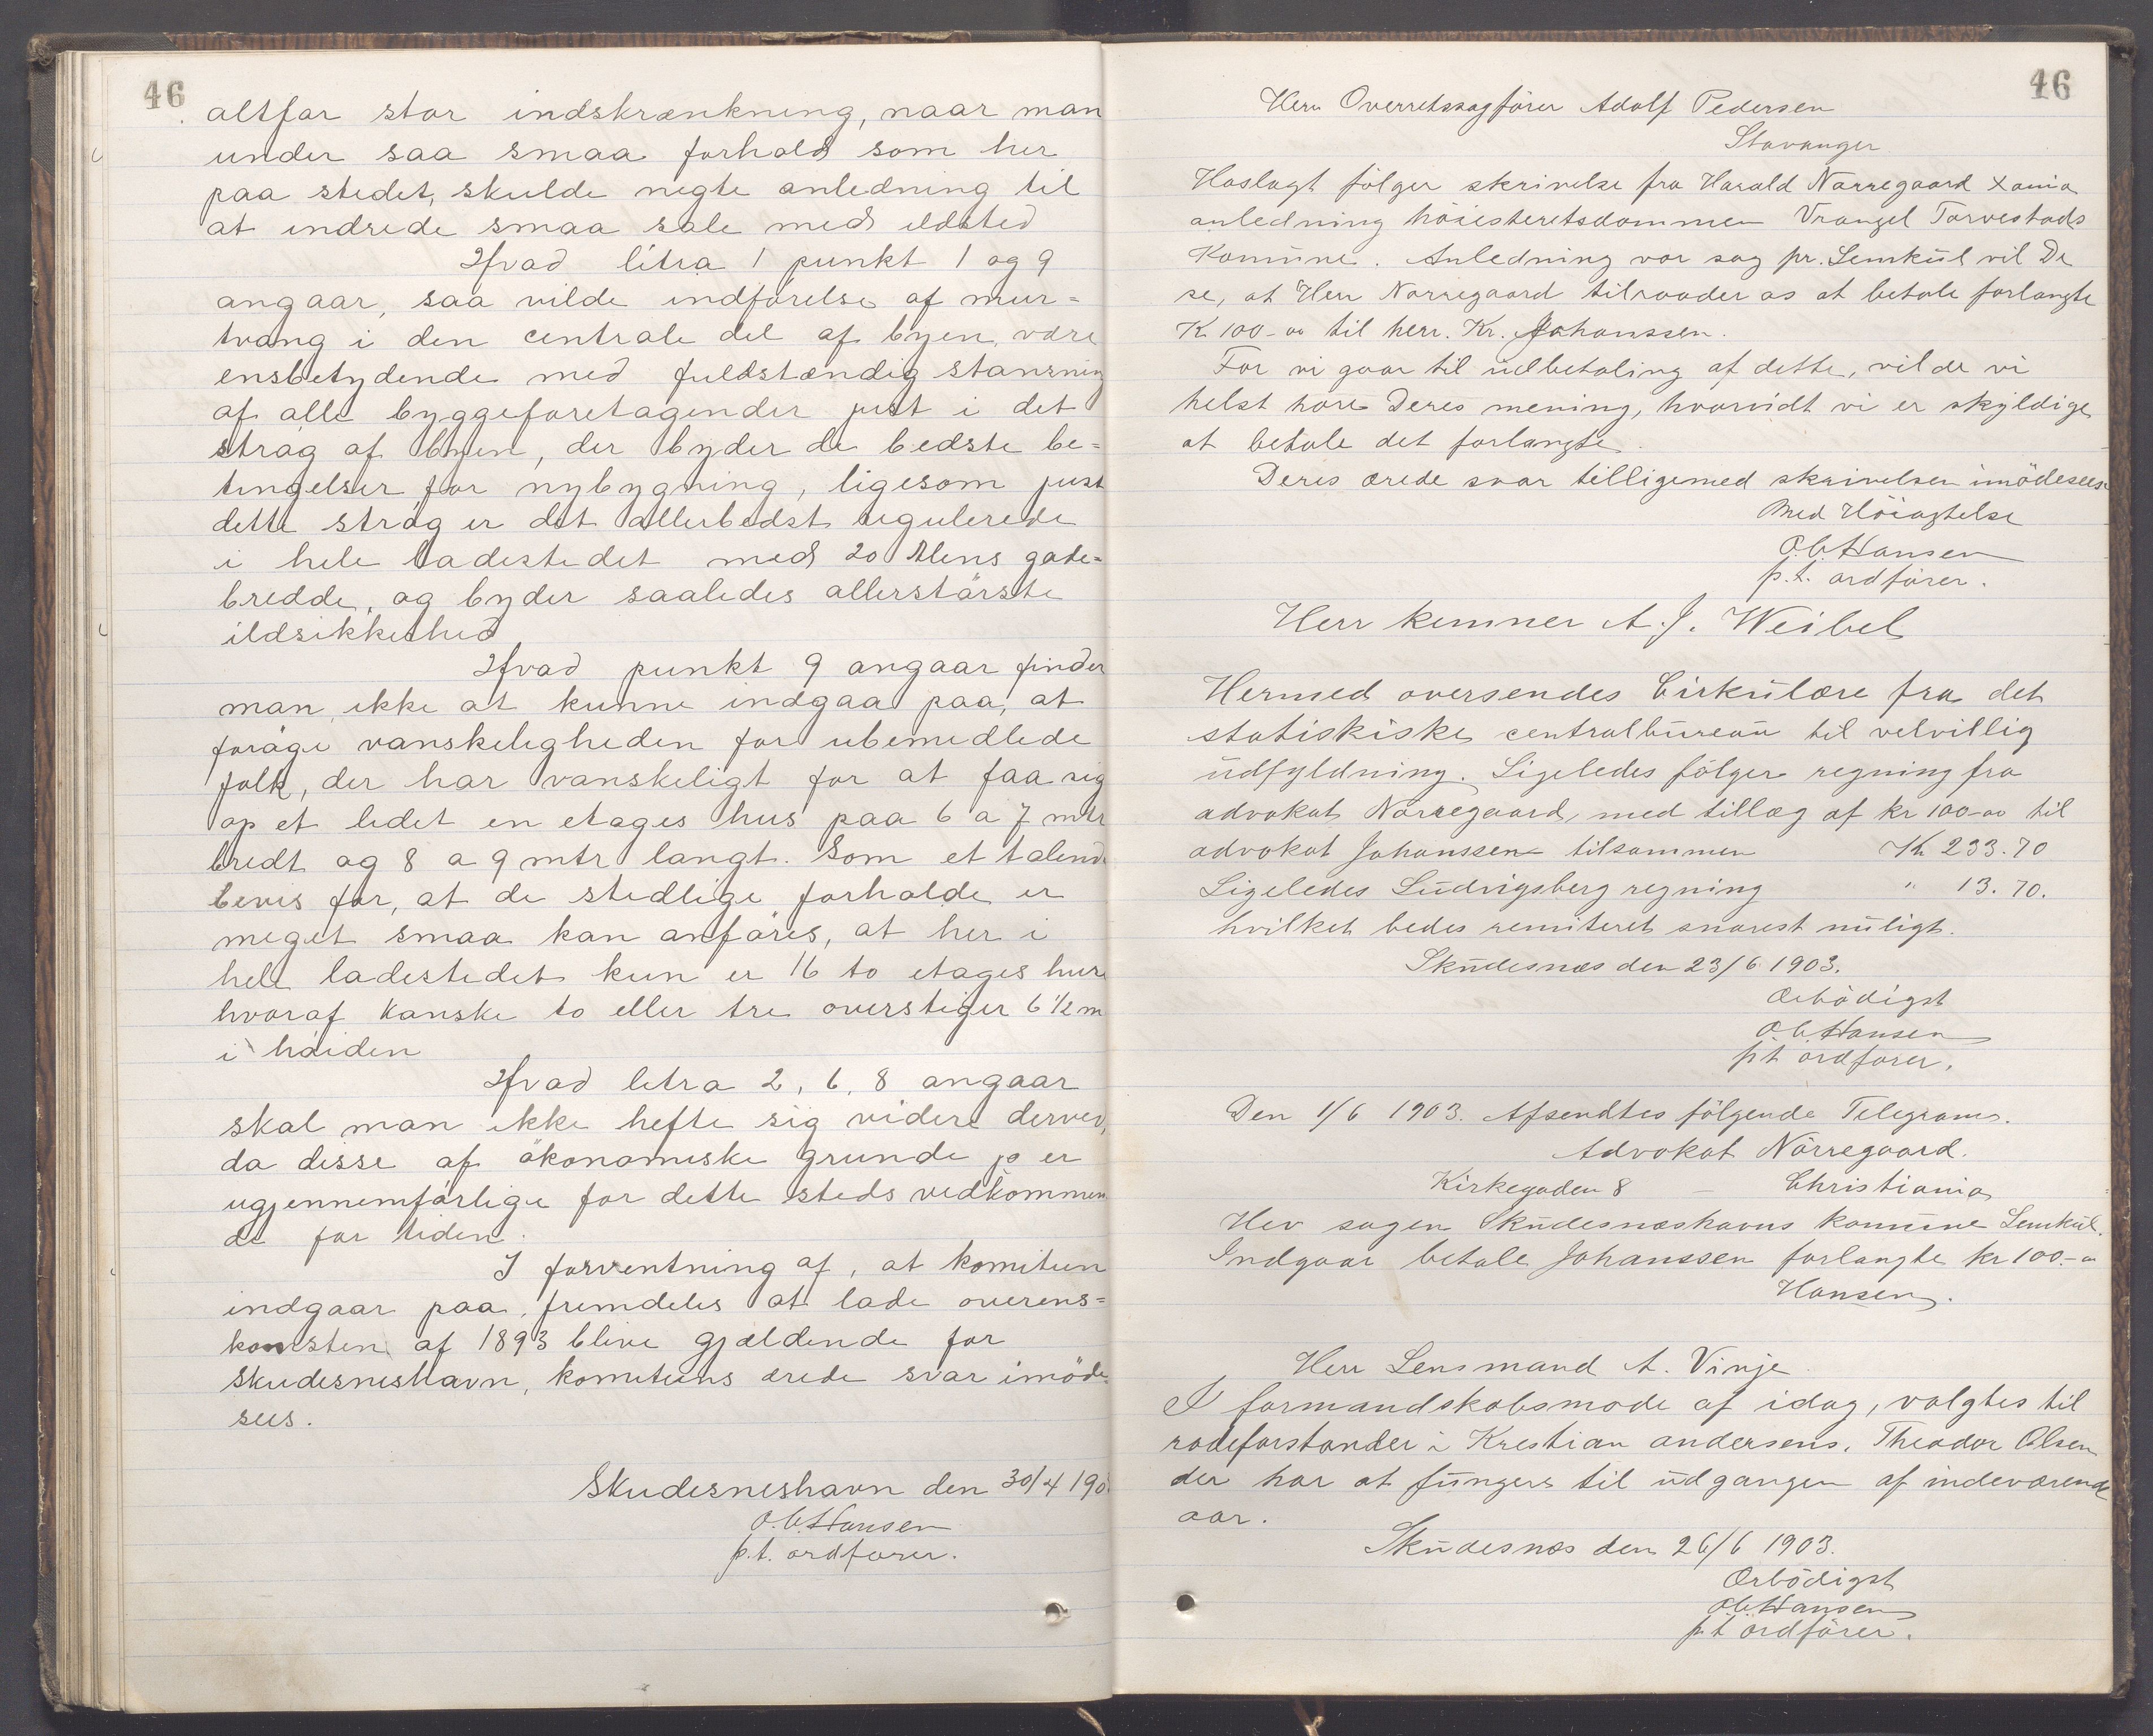 46
altfor stor indskrænkning, naar man
under saa smaa forhold som her
paa stedet, skulde negte anledning til
at indrede smaa sale med ildsted
Hvad litra 1 punkt 1 og 9
angaar, saa vilde indførelse af mur=
tvang i den centrale del af byen, være
ensbetydende med fuldstændig stansning
af alle byggeforetagender just i det
strøg af byen, der byder de bedste be=
tingelser for nybygning, ligesom just
dette strøg er det allerbedst regulerede
i hele ladestedet med 20 Alens gade=
bredde, og byder saaledes allerstørste
ildsikkerhed
Hvad punkt 9 angaar finder
man ikke at kunne indgaa paa, at
forøge vanskeligheden for ubemedlede
folk, der har vanskeligt for at faa sig
op et lidet en etages hus paa 6 a 7 mtr
bredt og 8 a 9 mtr langt. Som et talende
bevis for, at de stedlige forholde er
meget smaa kan anføres, at her i
hele ladestedet kun er 16 to etages huse
hvoraf kanske to eller tre overstiger 6 ½ m
i høiden
Hvad litra 2, 6, 8 angaar
skal man ikke hefte sig videre derved,
da disse af økonomiske grunde jo er
ugjennemførlige for dette steds vedkommen
de for tiden.
I forventning af, at komiteen
indgaar paa, fremdeles at lade overens=
komsten af 1893 blive gjældende for
Skudesneshavn, komiteens ærede svar imøde
sees.
Skudesneshavn den 30/4 190
O.C. Hansen
p.t. ordfører.
46
Herr Overretssagfører Adolf Pedersen
Stavanger
Hoslagt følger skrivelse fra Harald Nørregaard Xania
anledning høiesteretsdommen Vrangel Torvestads
Komune. Anledning vor sag pr. Lemkül vil De
se, at Herr Nørregaard tilraader os at betale forlangte
K 100-00 til herr. Kr. Johanssen.
Før vi gaar til udbetaling af dette, vilde vi
helst høre Deres mening, hvorvidt vi er skyldige
at betale det forlangte.
Deres ærede svar tilligemed skrivelsen imødesees
Med Høiagtelse
O.C. Hansen
p.t. ordfører.
Herr kemner A. J. Weibel
Hermed oversendes Cirkulære fra det
statiskiske centralbureau til velvillig
udfyldning. Ligeledes følger regning fra
advokat Nørregaard, med tillæg af kr 100-00 til
advokat Johanssen tilsammen Kr 233.70
Ligeledes Ludvigsberg regning " 13.70.
hvilket bedes remiteret snarest muligt.
Skudesnæs den 23/6 1903.
Ærbødigst
O.C. Hansen
p.t. ordfører.
Den 1/6 1903. Afsendtes følgende Telegram.
Advokat Nørregaard.
Kirkegaden 8 — Christiania
Hev sagen Skudesnæshavns komune Lemkül.
Indgaar betale Johanssen forlangte kr 100.-00
Hansen.
Herr Lensmand A. Vinje
I formandskabsmøde af idag, valgtes til
rodeforstander i Krestian andersens, Theodor Olsen
der har at fungere til udgangen af indeværende
aar.
Skudesnæs den 26/6 1903.
Ærbødigst
O.C. Hansen
p.t. ordfører.